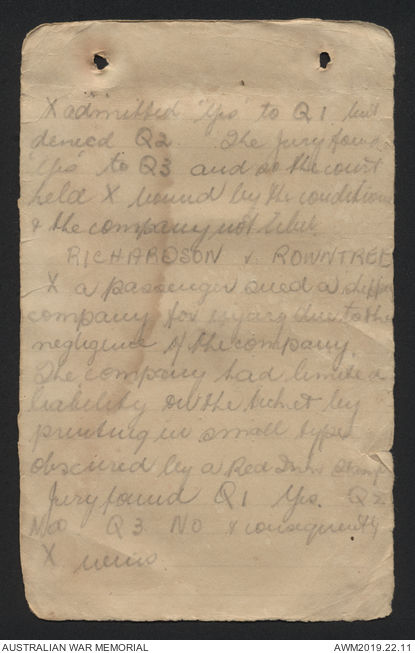 X admitted "Yes" to Q1 but
denied Q2. The Jury found
"Yes" to Q3 and so the court
held X bound by the conditions
& the company not liable.
RICHARDSON v ROWNTREE
X a passenger sued a
company for injury due to the
negligence of the company.
The company had limited
liability on the ticket by
printing in small type
obscured by a Red Ink Stamp
Jury found Q1 Yes. Q2
No Q3 No & consequently
X wins.
AUSTRALIAN WAR MEMORIAL
AWM2019.22.11